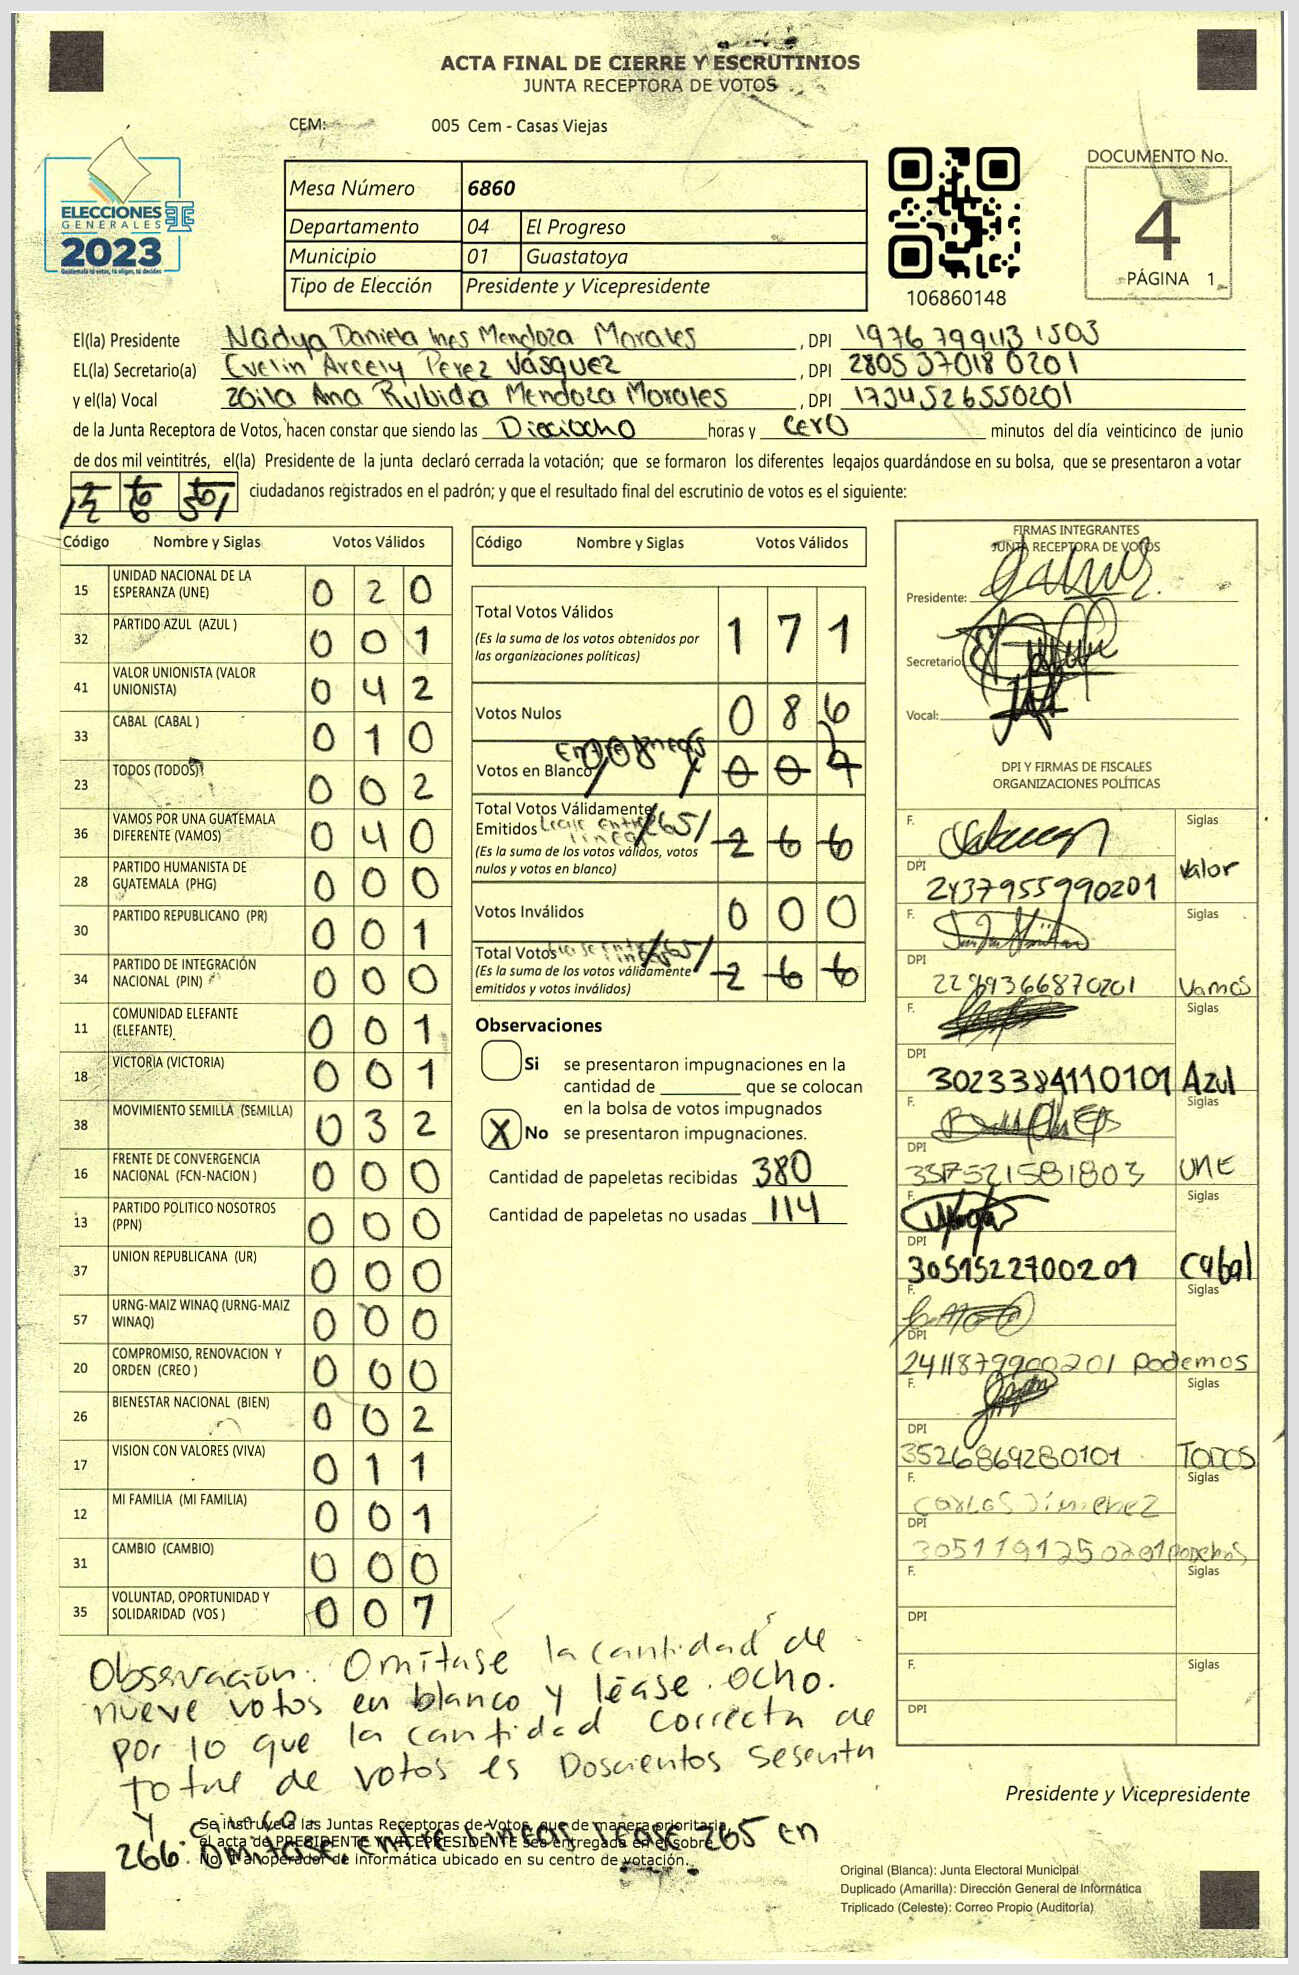 ACTA FINAL DE CIERRE Y ESCRUTINIOS
JUNTA RECEPTORA DE VOTOS
CEM: 005 Cem - Casas Viejas
ELECCIONES
GENERALES
2023
Guatemala tú votas, tú eliges, tú decides
Mesa Número 6860
Departamento 04 El Progreso
Municipio 01 Guastatoya
Tipo de Elección Presidente y Vicepresidente
106860148
DOCUMENTO No.
4
PÁGINA 1
El(la) Presidente Nadya Daniela Ines Mendoza Morales , DPI 1976 79943 1503
EL(la) Secretario(a) Evelin Arcely Pérez Vásquez , DPI 2805 37018 0201
y el(la) Vocal Zoila Ana Rubidia Mendoza Morales , DPI 1734526550201
de la Junta Receptora de Votos, hacen constar que siendo las Dieciocho horas y cero minutos del día veinticinco de junio
de dos mil veintitrés, el(la) Presidente de la junta declaró cerrada la votación; que se formaron los diferentes legajos guardándose en su bolsa, que se presentaron a votar
ciudadanos registrados en el padrón; y que el resultado final del escrutinio de votos es el siguiente:
Código Nombre y Siglas Votos Válidos
15 UNIDAD NACIONAL DE LA ESPERANZA (UNE) 0 2 0
32 PARTIDO AZUL (AZUL ) 0 0 1
41 VALOR UNIONISTA (VALOR UNIONISTA) 0 4 2
33 CABAL (CABAL ) 0 1 0
23 TODOS (TODOS) 0 0 2
36 VAMOS POR UNA GUATEMALA DIFERENTE (VAMOS) 0 4 0
28 PARTIDO HUMANISTA DE GUATEMALA (PHG) 0 0 0
30 PARTIDO REPUBLICANO (PR) 0 0 1
34 PARTIDO DE INTEGRACIÓN NACIONAL (PIN) 0 0 0
11 COMUNIDAD ELEFANTE (ELEFANTE) 0 0 1
18 VICTORIA (VICTORIA) 0 0 1
38 MOVIMIENTO SEMILLA (SEMILLA) 0 3 2
16 FRENTE DE CONVERGENCIA NACIONAL (FCN-NACION ) 0 0 0
13 PARTIDO POLITICO NOSOTROS (PPN) 0 0 0
37 UNION REPUBLICANA (UR) 0 0 0
57 URNG-MAIZ WINAQ (URNG-MAIZ WINAQ) 0 0 0
20 COMPROMISO, RENOVACION Y ORDEN (CREO ) 0 0 0
26 BIENESTAR NACIONAL (BIEN) 0 0 2
17 VISION CON VALORES (VIVA) 0 1 1
12 MI FAMILIA (MI FAMILIA) 0 0 1
31 CAMBIO (CAMBIO) 0 0 0
35 VOLUNTAD, OPORTUNIDAD Y SOLIDARIDAD (VOS ) 0 0 7
Código Nombre y Siglas Votos Válidos
Total Votos Válidos 1 7 1
(Es la suma de los votos obtenidos por
las organizaciones politicas)
Votos Nulos 0 8 6
Votos en Blanco /008/
Total Votos Válidamente
Emitidos Lease entre lineas /265/ 2 6 6
(Es la suma de los votos válidos, votos
nulos y votos en blanco)
Votos Inválidos 0 0 0
Total Votos lease entre lineas /265/ 2 6 6
(Es la suma de los votos válidamente
emitidos y votos inválidos)
Observaciones
Si se presentaron impugnaciones en la
cantidad de ________ que se colocan
en la bolsa de votos impugnados
X No se presentaron impugnaciones.
Cantidad de papeletas recibidas 380
Cantidad de papeletas no usadas 114
FIRMAS INTEGRANTES
JUNTA RECEPTORA DE VOTOS
Presidente:
Secretario:
Vocal:
DPI Y FIRMAS DE FISCALES
ORGANIZACIONES POLÍTICAS
F. Siglas
DPI 2437955990201 Valor
F. Siglas
DPI 2289366870201 Vamos
F. Siglas
DPI 3023384110101 Azul
F. Siglas
DPI UNE
F. Siglas
DPI 3051522700201 Cabal
F. Siglas
DPI 2411879900201 Podemos
F. Siglas
DPI 3526869280101 TODOS
F. Carlos Jimenez Siglas
DPI 3051191250201 Podemos
F. Siglas
DPI
F. Siglas
DPI
Observación. Omítase la cantidad de
nueve votos en blanco y léase ocho.
por lo que la cantidad correcta de
total de votos es Doscientos sesenta
y cinco
Se instruye a las Juntas Receptoras de Votos, que de manera prioritaria,
el acta de PRESIDENTE Y VICEPRESIDENTE sea entregada en el sobre
No. 1 al operador de informática ubicado en su centro de votación.
266. Omitase. entre lineas lease 265 en
Presidente y Vicepresidente
Original (Blanca): Junta Electoral Municipal
Duplicado (Amarilla): Dirección General de Informática
Triplicado (Celeste): Correo Propio (Auditoría)